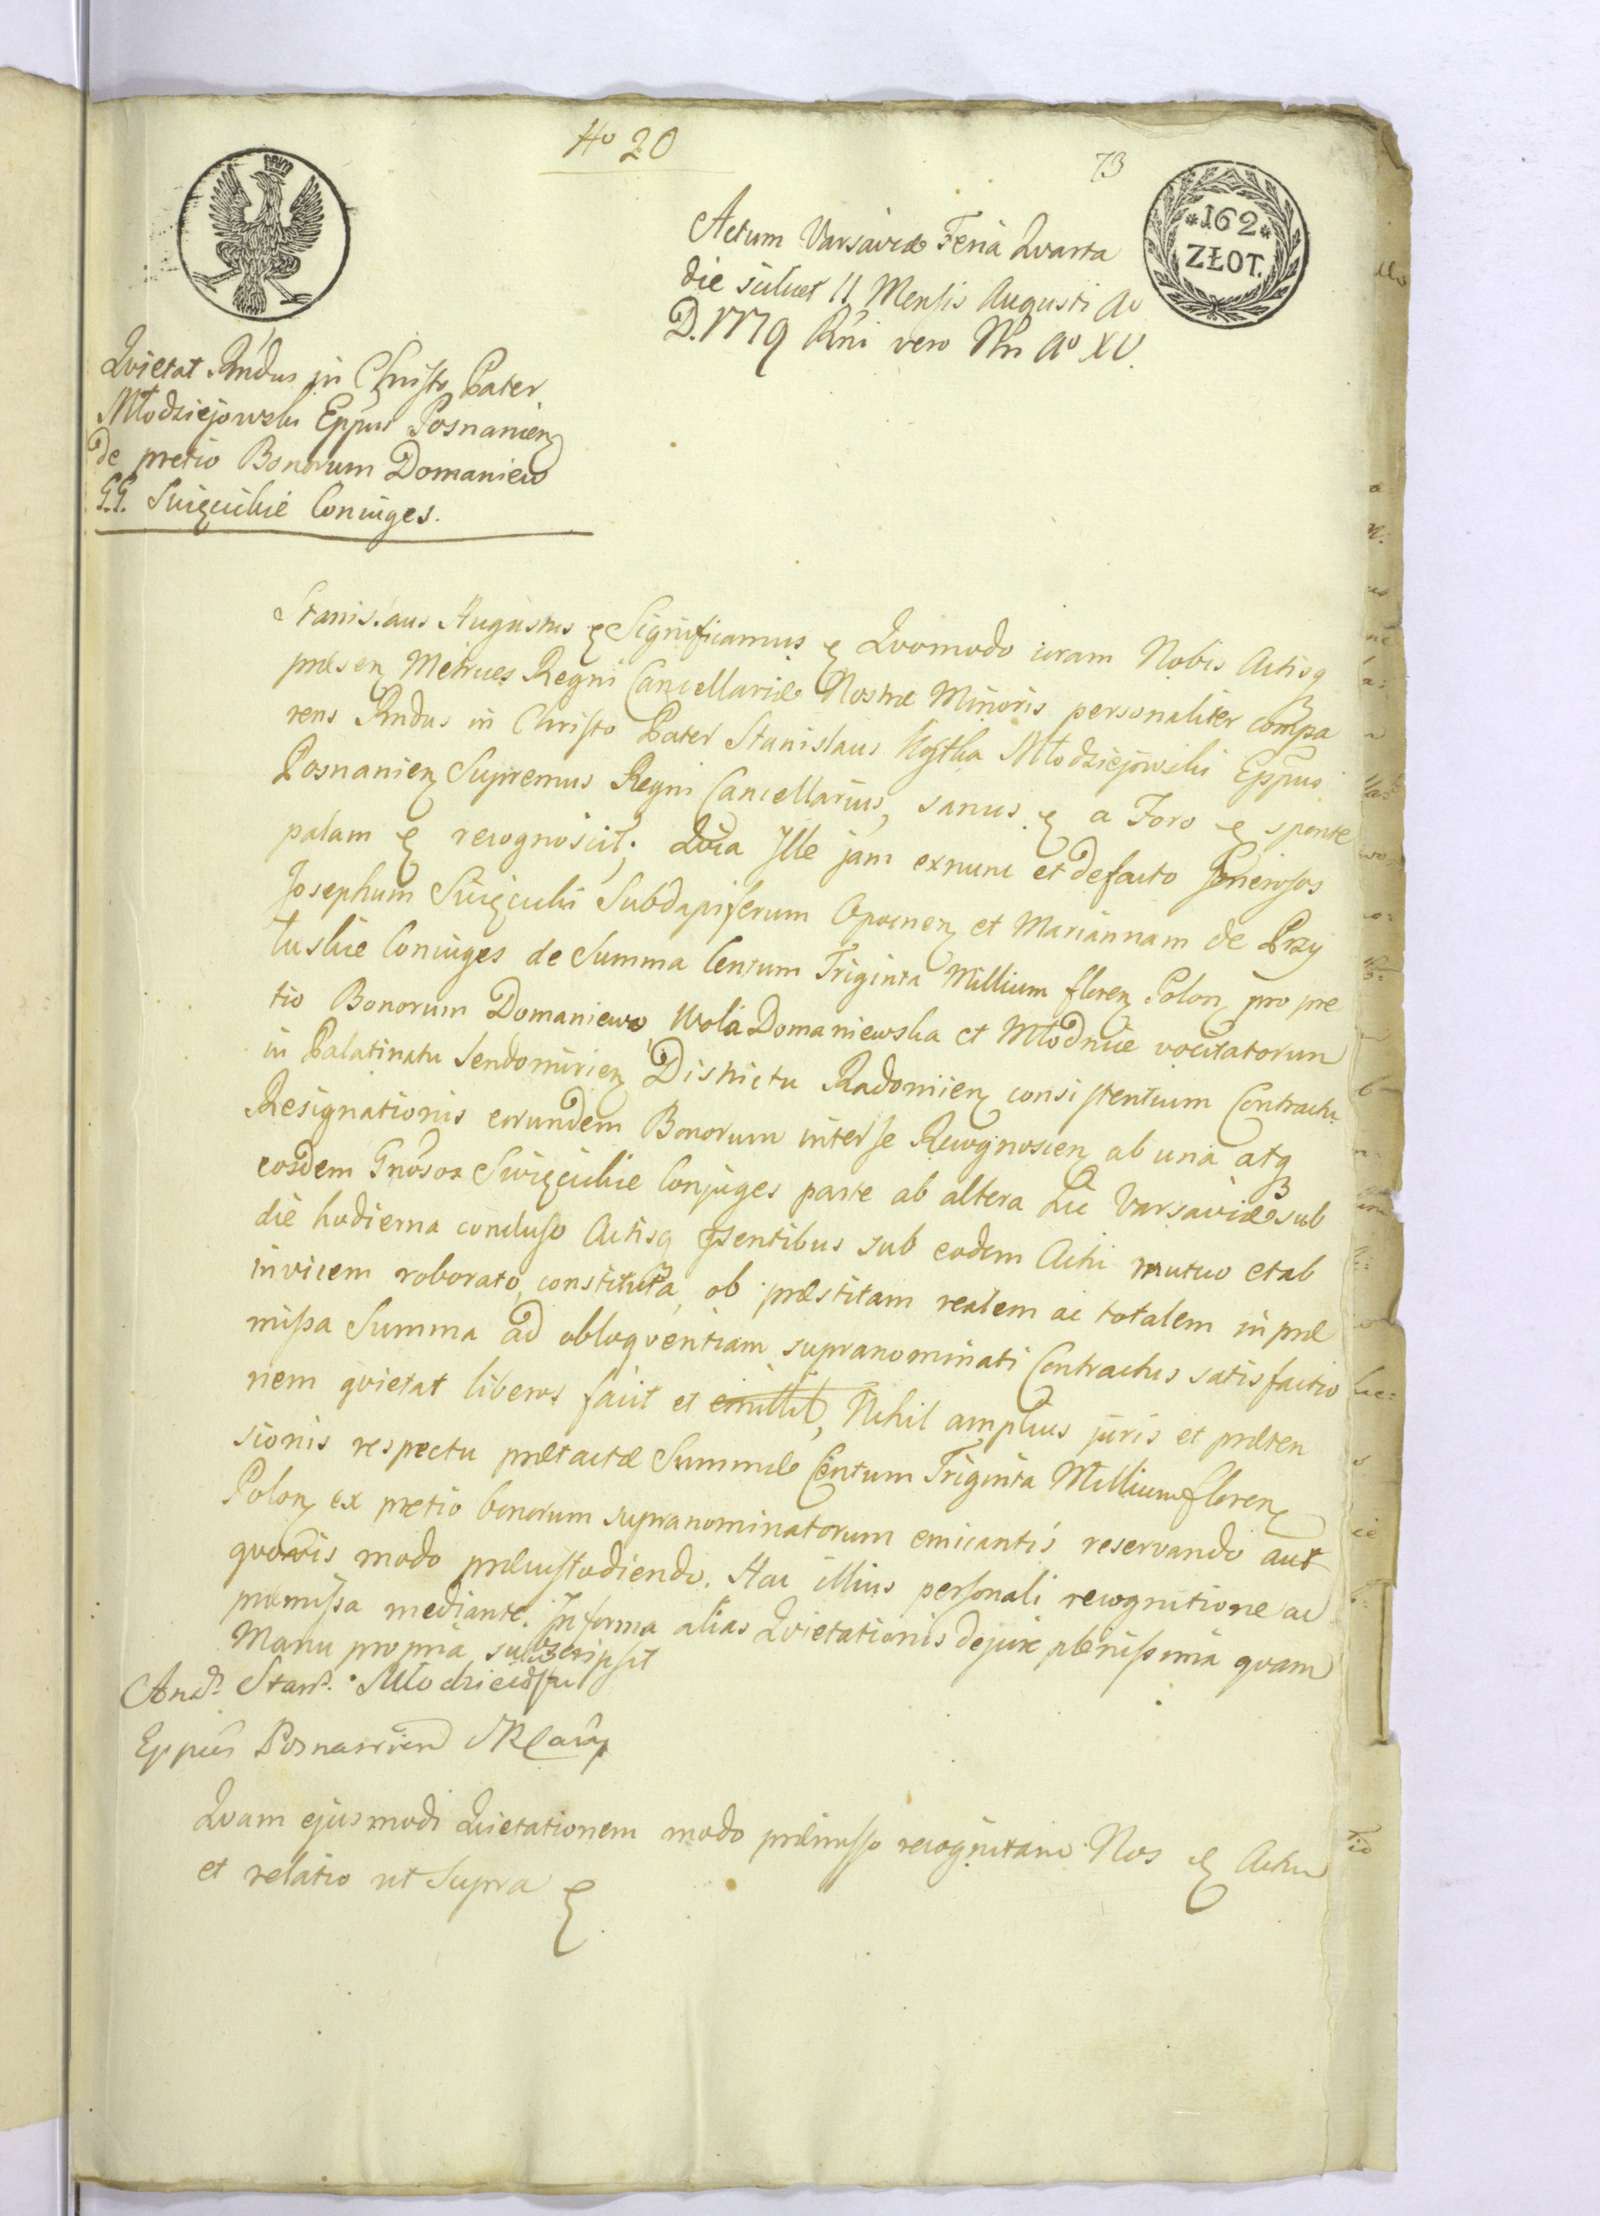 No 20
73
*162*
ZŁOT.
Actum Varsaviæ Feria Qvarta
die scilicet 11 Mensis Augusti Ao
D. 1779 Rni vero Nri Ao XV.
Qvietat Rndus in Christo Pater
Młodziejowski Eppus Posnanien
de pretio Bonorum Domaniew
G.G. Swięcickie Coniuges.
Stanislaus Augustus & Significamus & Qvomodo coram Nobis Actisq
præsen Metrices Regni Cancellariæ Nostræ Minoris personaliter compa
rens Rndus in Christo Pater Stanislaus Kostka Młodziejowski Eppus
Posnanien Supremus Regni Cancellarius, sanus & a Foro & sponte
palam & recognoscit; Qvia Ille jam exnunc et defacto Generosos
Josephum Swięcicki Subdapiferum Opocnen et Mariannam de Przy
łuskie Coniuges de Summa Centum Triginta Millium floren Polon pro pre
tio Bonorum Domaniewo, Wola Domaniewska et Młodnice vocitatorum
in Palatinatu Sendomirien Districtu Radomien consistentium Contractu
Resignationis eorundem Bonorum inter se Recognoscen ab una atq
eosdem Gnosos Swięcickie Conjuges parte ab altera hic Varsaviæ sub
die hodierna concluso Actisq psentibus sub eodem Actu mutuo et ab
invicem roborato, constituta, ob præstitam realem ac totalem in præ
missa Summa ad obloqventiam supranominati Contractus satisfactio
nem qvietat liberos facit et emittit, Nihil amplius juris et præten
sionis respectu prætactæ Summæ Centum Triginta Millium floren
Polon ex pretio bonorum supranominatorum emicantis reservando aut
qvovis modo præcustodiendo. Hac illius personali recognitione ac
præmissa mediante. In forma alias Qvietationis de jure plenissima qvam
Manu propria subscripsit
And. Stan. Młodzieiowski
Eppus Posnanien
Qvam ejusmodi Qvietationem modo præmisso recognitam Nos & Actum
et relatio ut Supra &